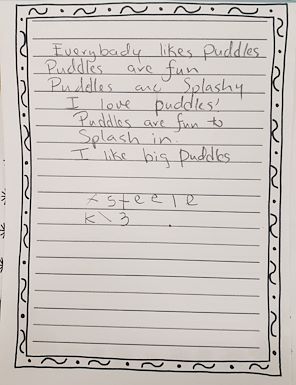 Everybody likes Puddles
Puddles are fun
Puddles are Splashy
I love puddles!
Puddles are fun to
Splash in.
I like big Puddles
steele
K\3